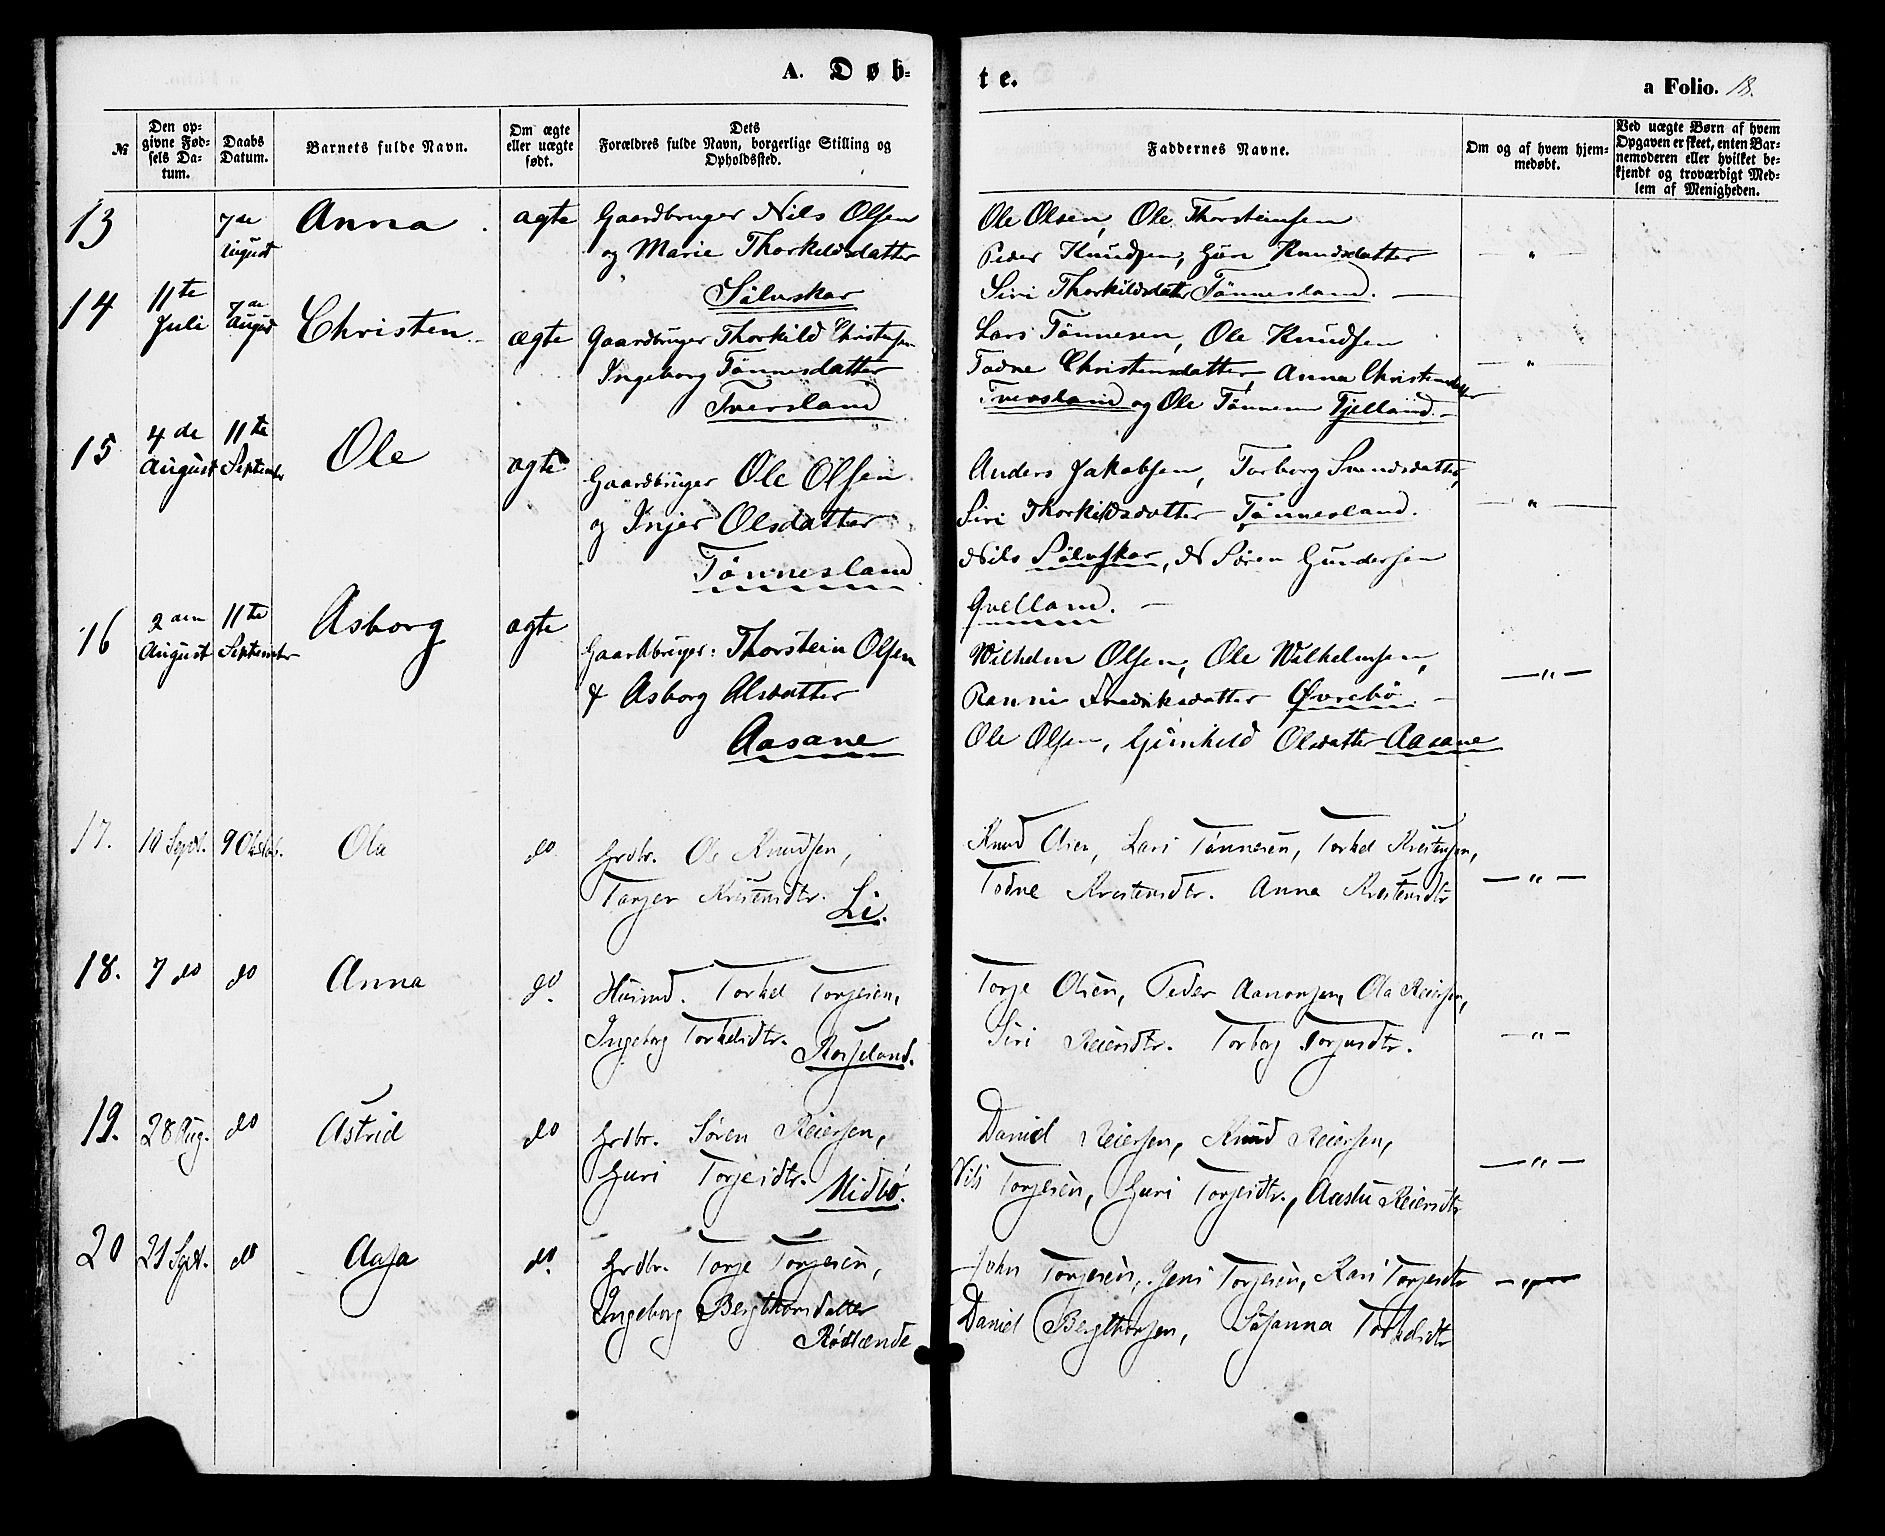 A. Døb-
te.
a Folio. 18.
№
Den op-
givne Fød-
sels Da-
tum.
Daabs
Datum.
Barnets fulde Navn.
Om ægte
eller uægte
født.
Dets
Forældres fulde Navn, borgerlige Stilling og
Opholdssted.
Faddernes Navne.
Om og af hvem hjem-
medøbt.
Ved uægte Børn af hvem
Opgaven er skeet, enten Bar-
nemoderen eller hvilket be-
kjendt og troværdigt Med-
lem af Menigheden.
13
7de
August
Anna
ægte
Gaardbruger Nils Olsen
og Marie Thorkildsdatter
Sølvskar
Ole Olsen, Ole Thorsteinsen
Peder Knudsen, Guri Knudsdatter
Siri Thorkildsdatter Tønnesland.
"
14
11te
Juli
7de
August
Christen
ægte
Gaardbruger Thorkild Christensen
Ingeborg Tønnesdatter
Tversland
Lars Tønnesen, Ole Knudsen
Todne Christensdatter, Anna Christensdatter
Tversland og Ole Tønnesen Fjelland.
"
15
4de
August
11te
September
Ole
ægte
Gaardbruger Ole Olsen
og Injer Olsdatter
Tønnesland
Anders Jakobsen, Torborg Svendsdatter,
Siri Thorkildsdatter Tønnesland.
Nils Sølvskar, N Søren Gundersen
"
16
2den
August
11te
September
Asborg
ægte
Gaardbruger: Thorstein Olsen
& Asborg Alsdatter
Aasane
Wilhelm Olsen, Ole Wilhelmsen,
Fredriksdatter Øvrebø.
Ole Olsen, Gunhild Olsdatter Aasane
"
17.
10 Sept.
9 Oktob.
Ola
do
Grdbr. Ole Knudsen,
Tarjer Kristensdtr. Li.
Knud Olsen, Lars Tønnesen, Torkel Kristensen,
Todne Kristensdtr. Anna Kristensdtr
"
18.
7 do
do
Anna
do.
Husmd. Torkel Torjesen,
Ingeborg Torkelsdtr. Rosseland.
Torje Olsen, Peder Aanonsen, Ola Reiersen,
Siri Reiersdtr. Torborg Torjusdtr.
"
19.
28 Aug.
do
Astrid
do
Grdbr. Søren Reiersen,
Guri Torjesdtr. Midbø.
Daniel Reiersen, Knud Reiersen,
Nils Torjesen, Guri Torjesdtr., Aaste Reiersdtr
"
20
21 Sept.
do
Aasa
do.
Grdbr. Torje Torjesen,
Ingeborg Bergthorsdatter
John Torjesen, Jens Torjesen, Kari Torjesdtr
Daniel Bergthorsen, Susanna Torkelsdtr